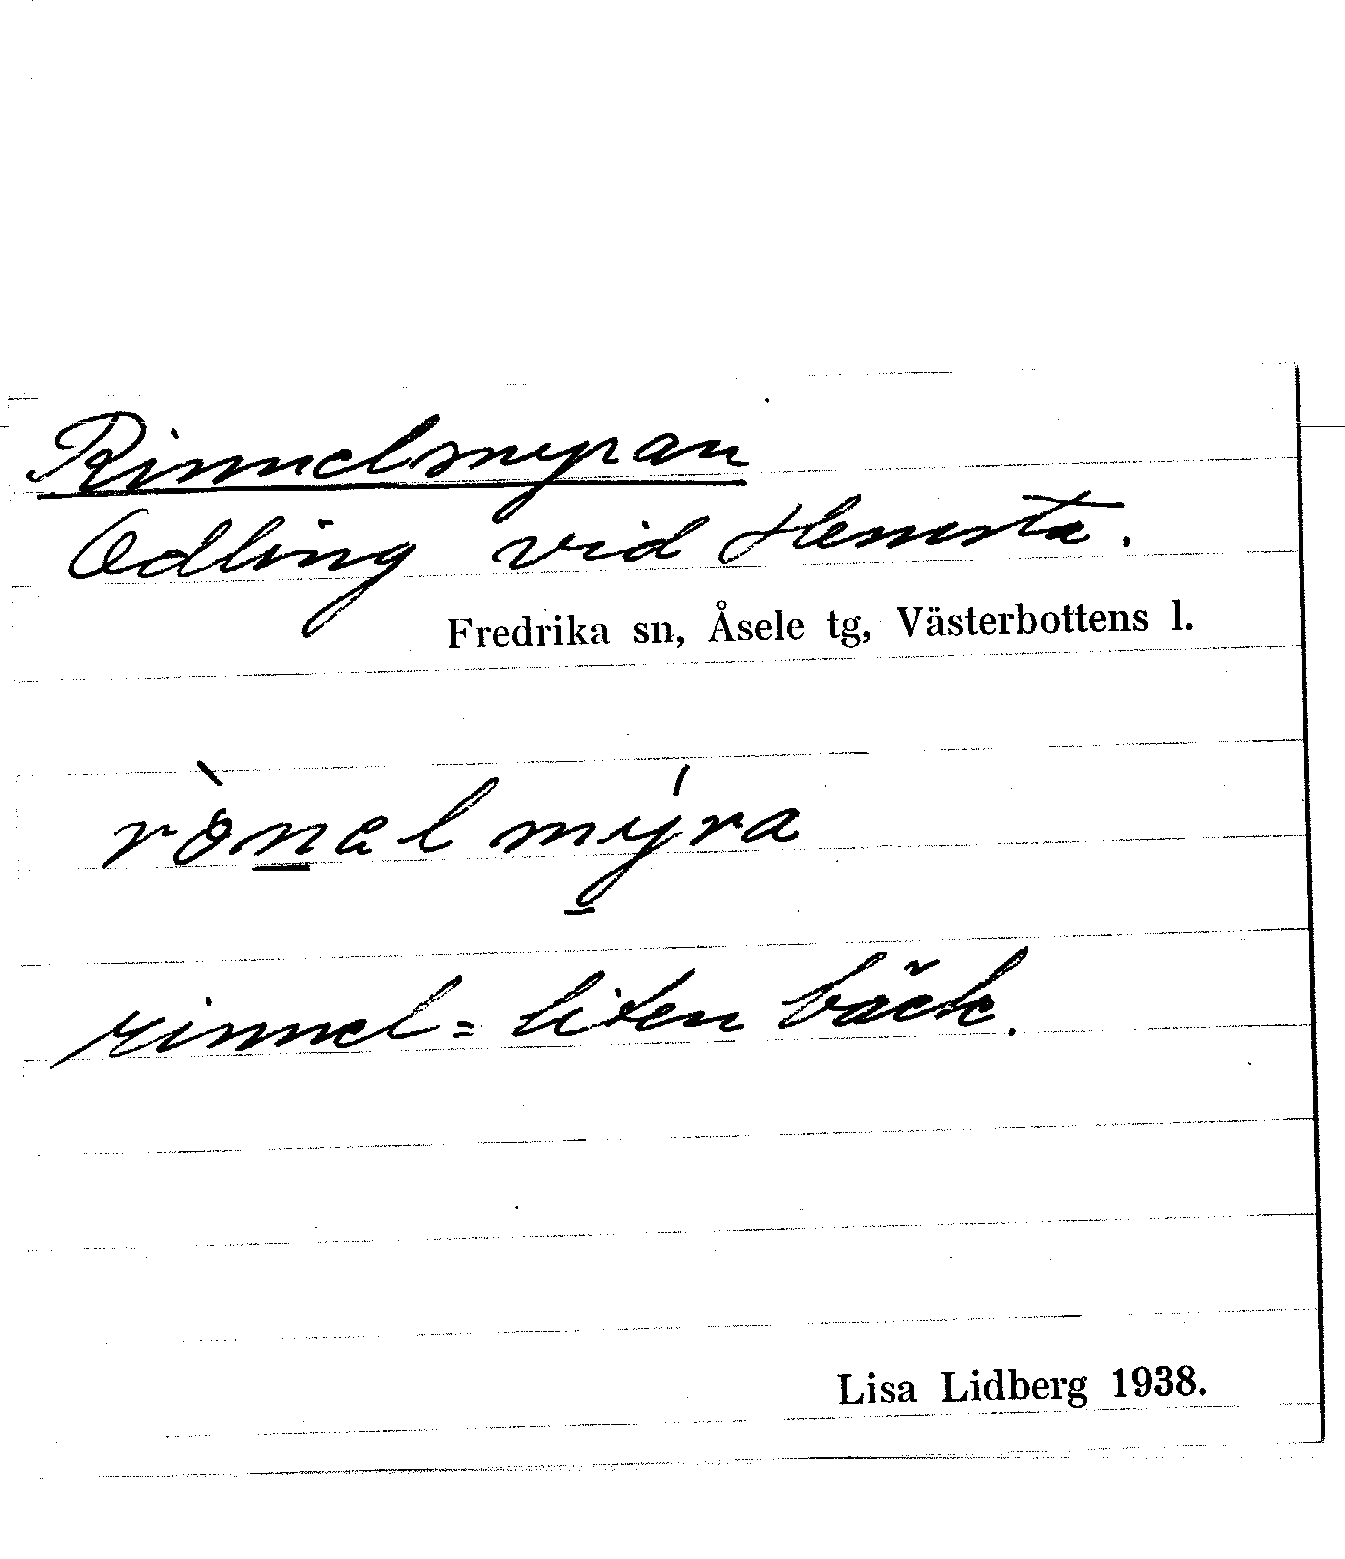 Rinnelsmyran
Odling vid Hemsta.
Fredrika sn, Åsele tg, Västerbottens l.
rinnel = liten bäck.
Lisa Lidberg 1938.